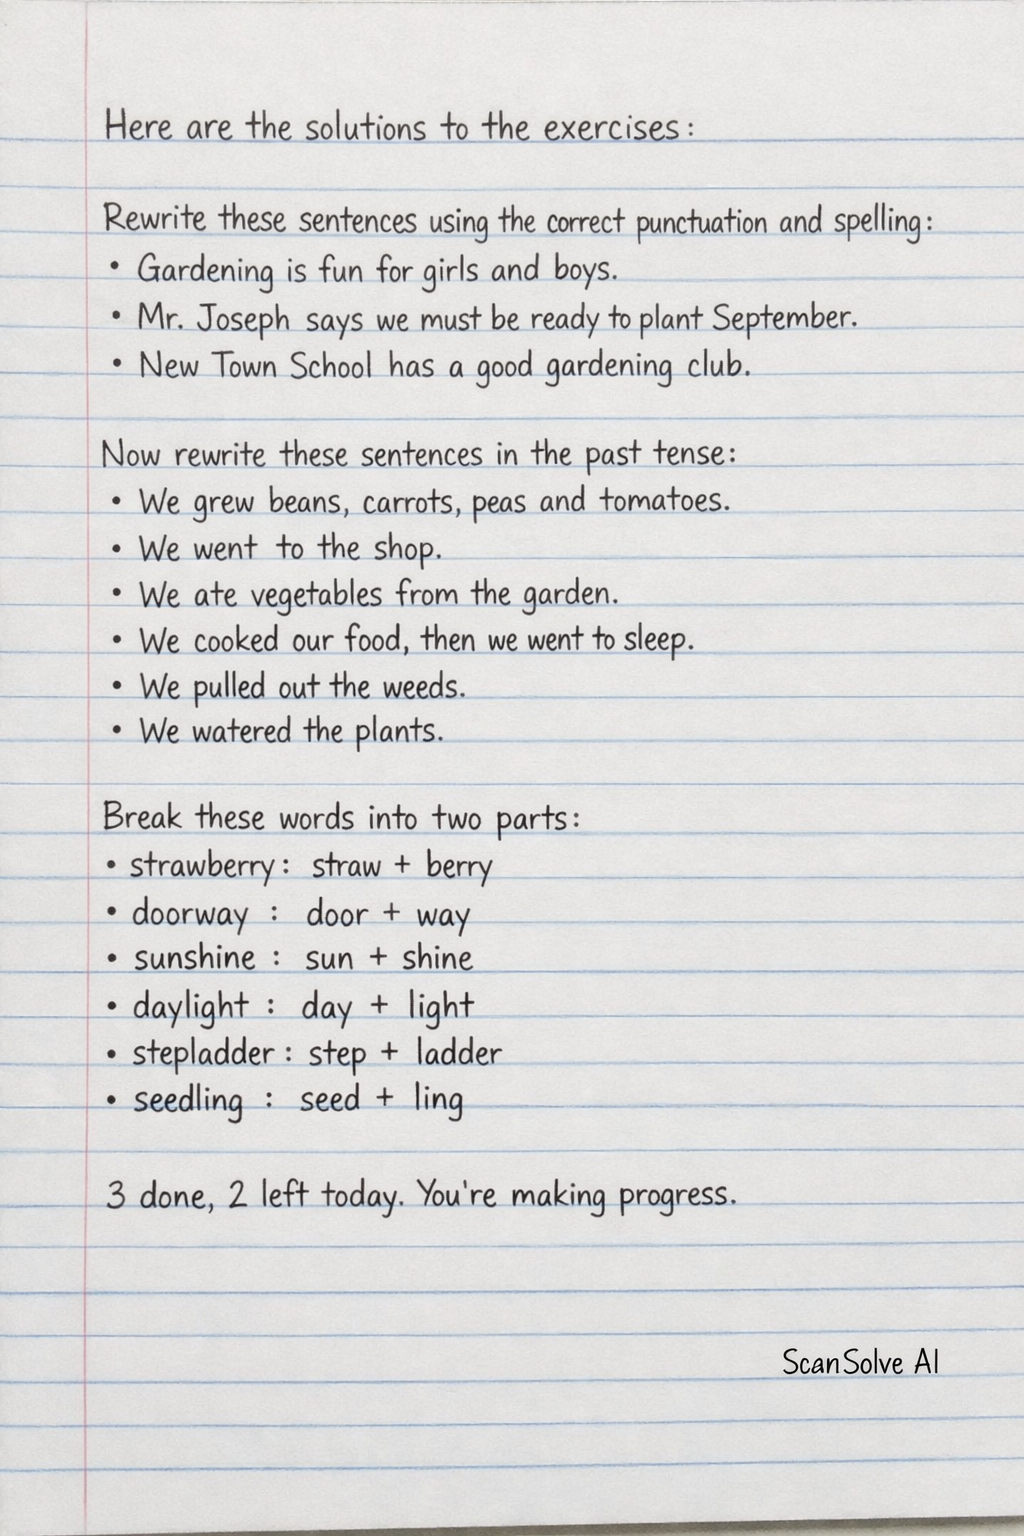 Here are the solutions to the exercises:
Rewrite these sentences using the correct punctuation and spelling:
• Gardening is fun for girls and boys.
• Mr. Joseph says we must be ready to plant September.
• New Town School has a good gardening club.
Now rewrite these sentences in the past tense:
• We grew beans, carrots, peas and tomatoes.
• We went to the shop.
• We ate vegetables from the garden.
• We cooked our food, then we went to sleep.
• We pulled out the weeds.
• We watered the plants.
Break these words into two parts:
• strawberry: straw + berry
• doorway : door + way
• sunshine : sun + shine
• daylight : day + light
• stepladder : step + ladder
• seedling : seed + ling
3 done, 2 left today. You're making progress.
ScanSolve AI